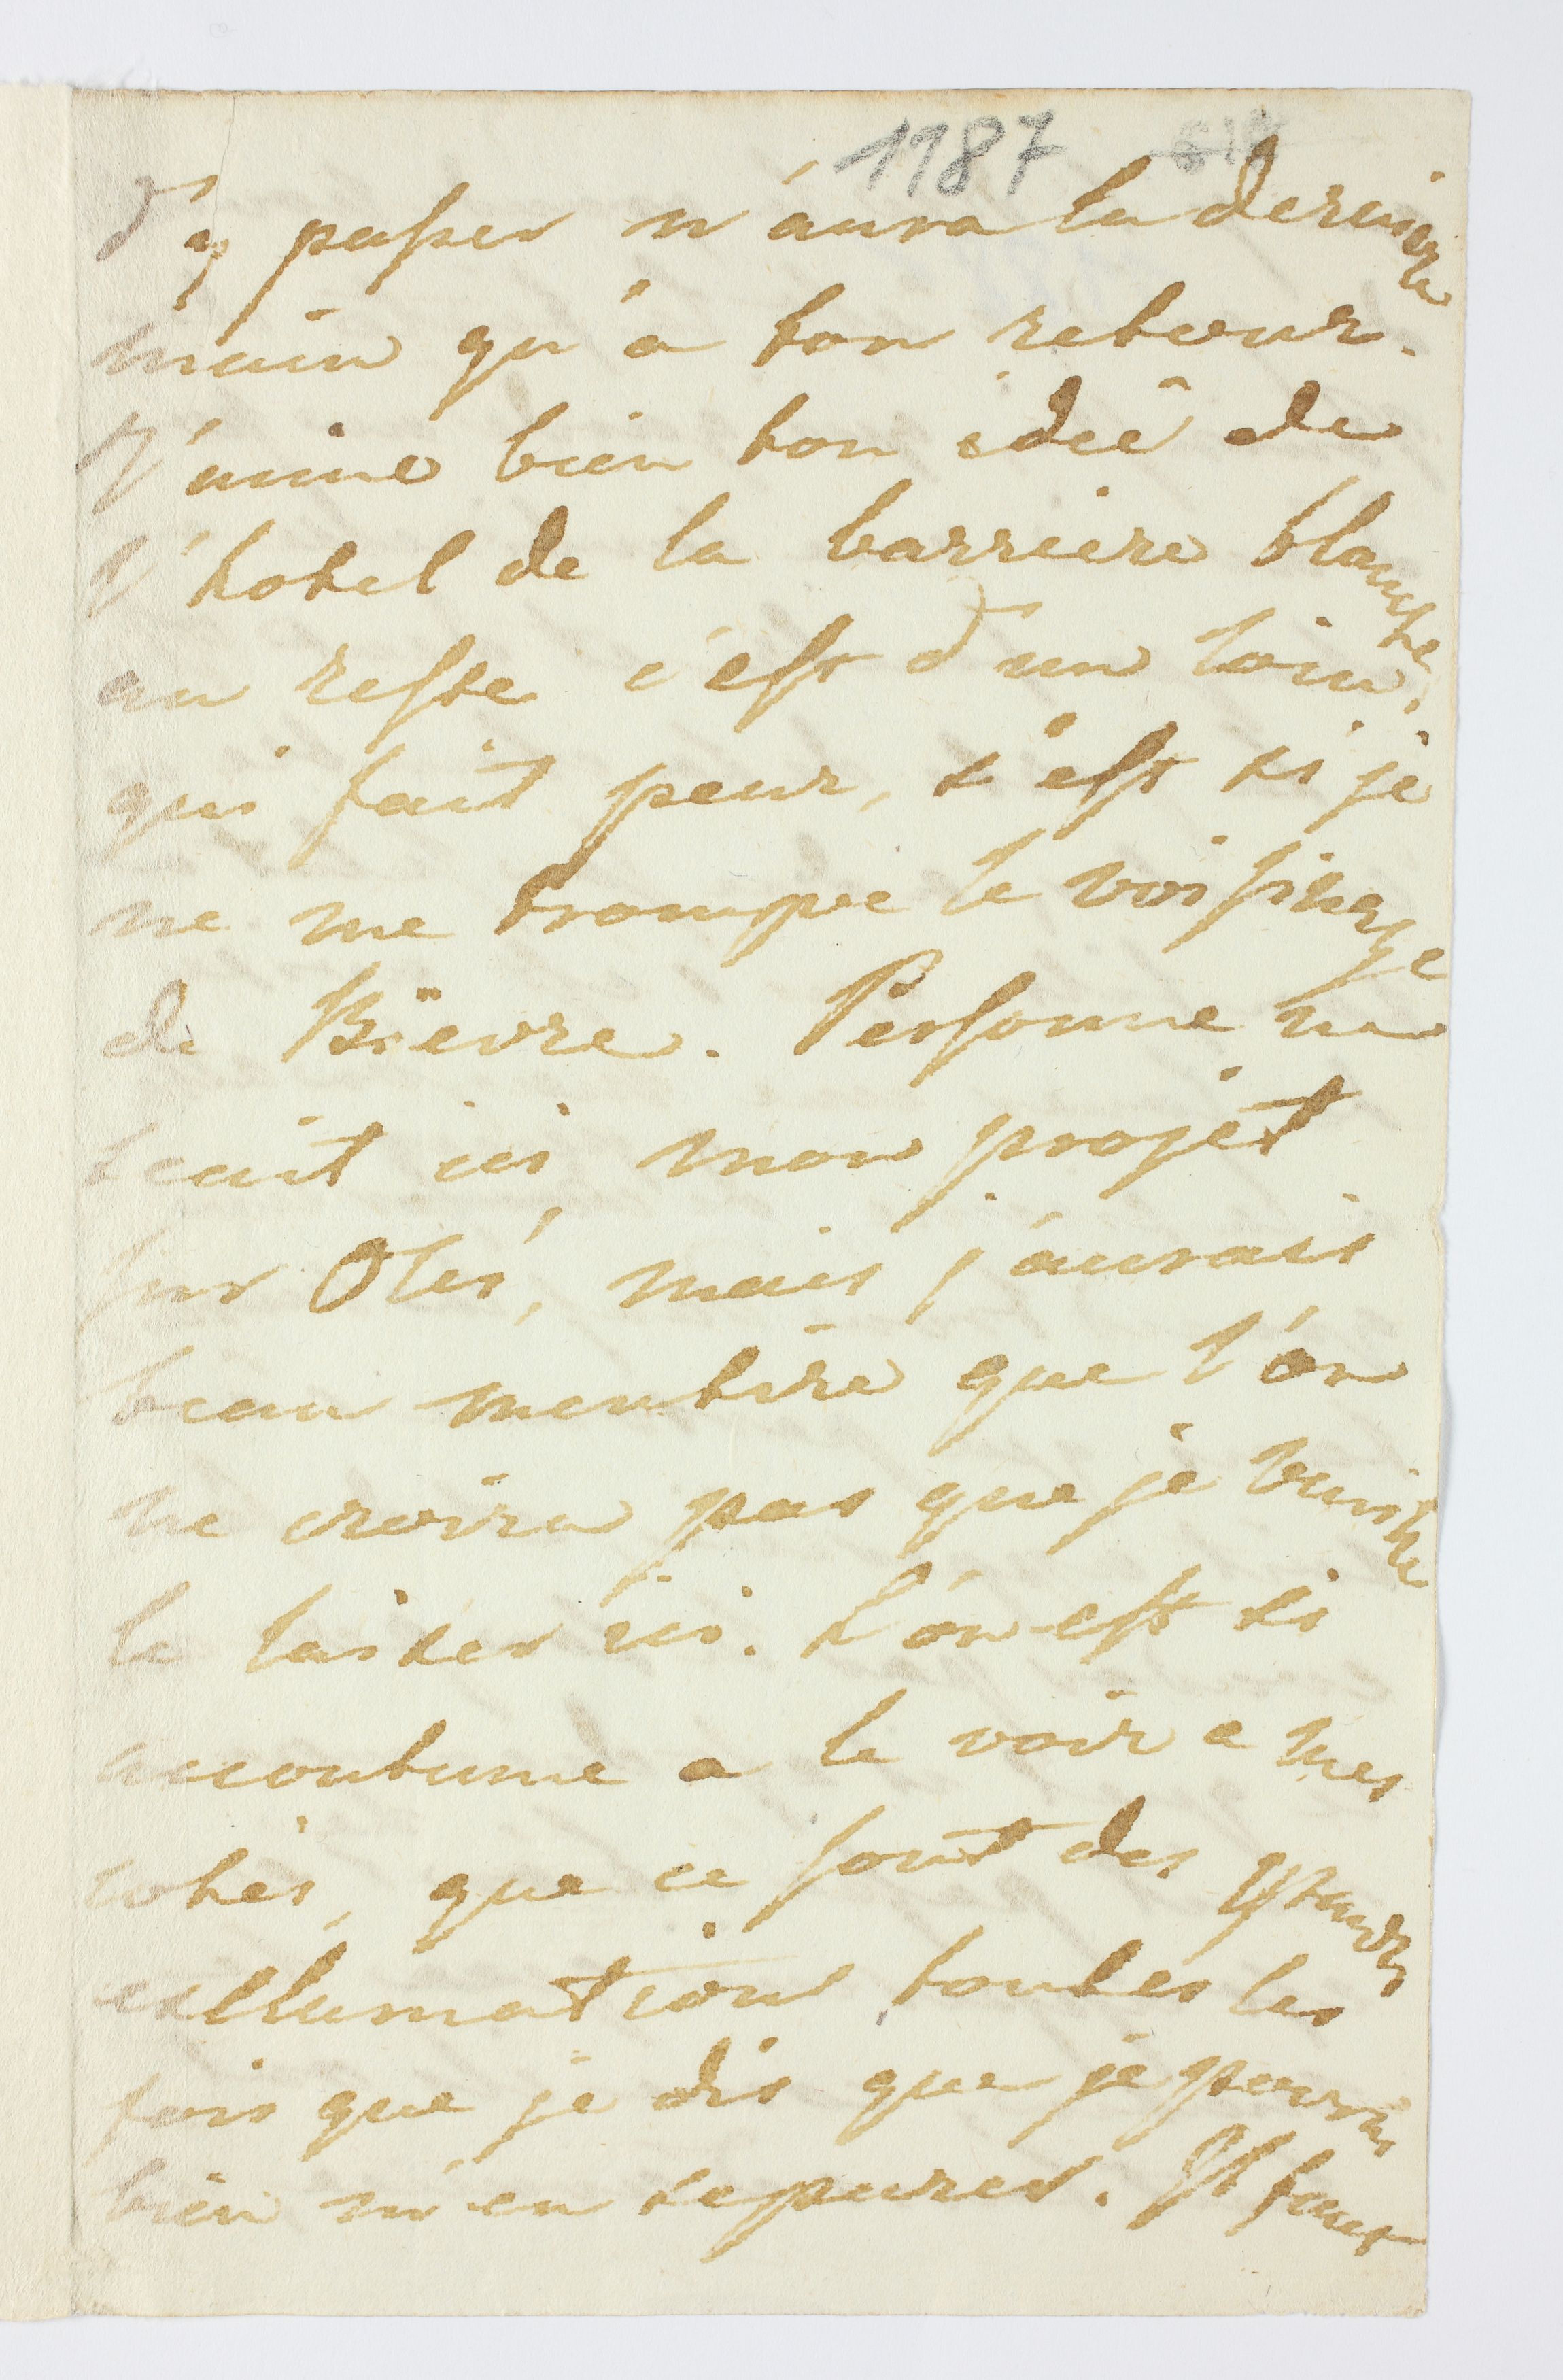 1987
d'y passer n'aura la dernière
main qu'a ton retour.
J'aime bien ton idée de
l'hotel de la barriere blanche,
au reste c'est d'un loin
qui fait peur, s'est si je
ne me trompe le voisinage
de Bievre. Personne ne
scait ici mon projet
sur Oles, mais j'aurais
beau mentire que l'on
ne croira pas que je veuille
le laisser ici. L'on est si
accoutume a le voir a mes
cotes, que ce sont des grandes
exllamations toutes les
fois que je dis que je pourrais
bien m'en separer. Il faut